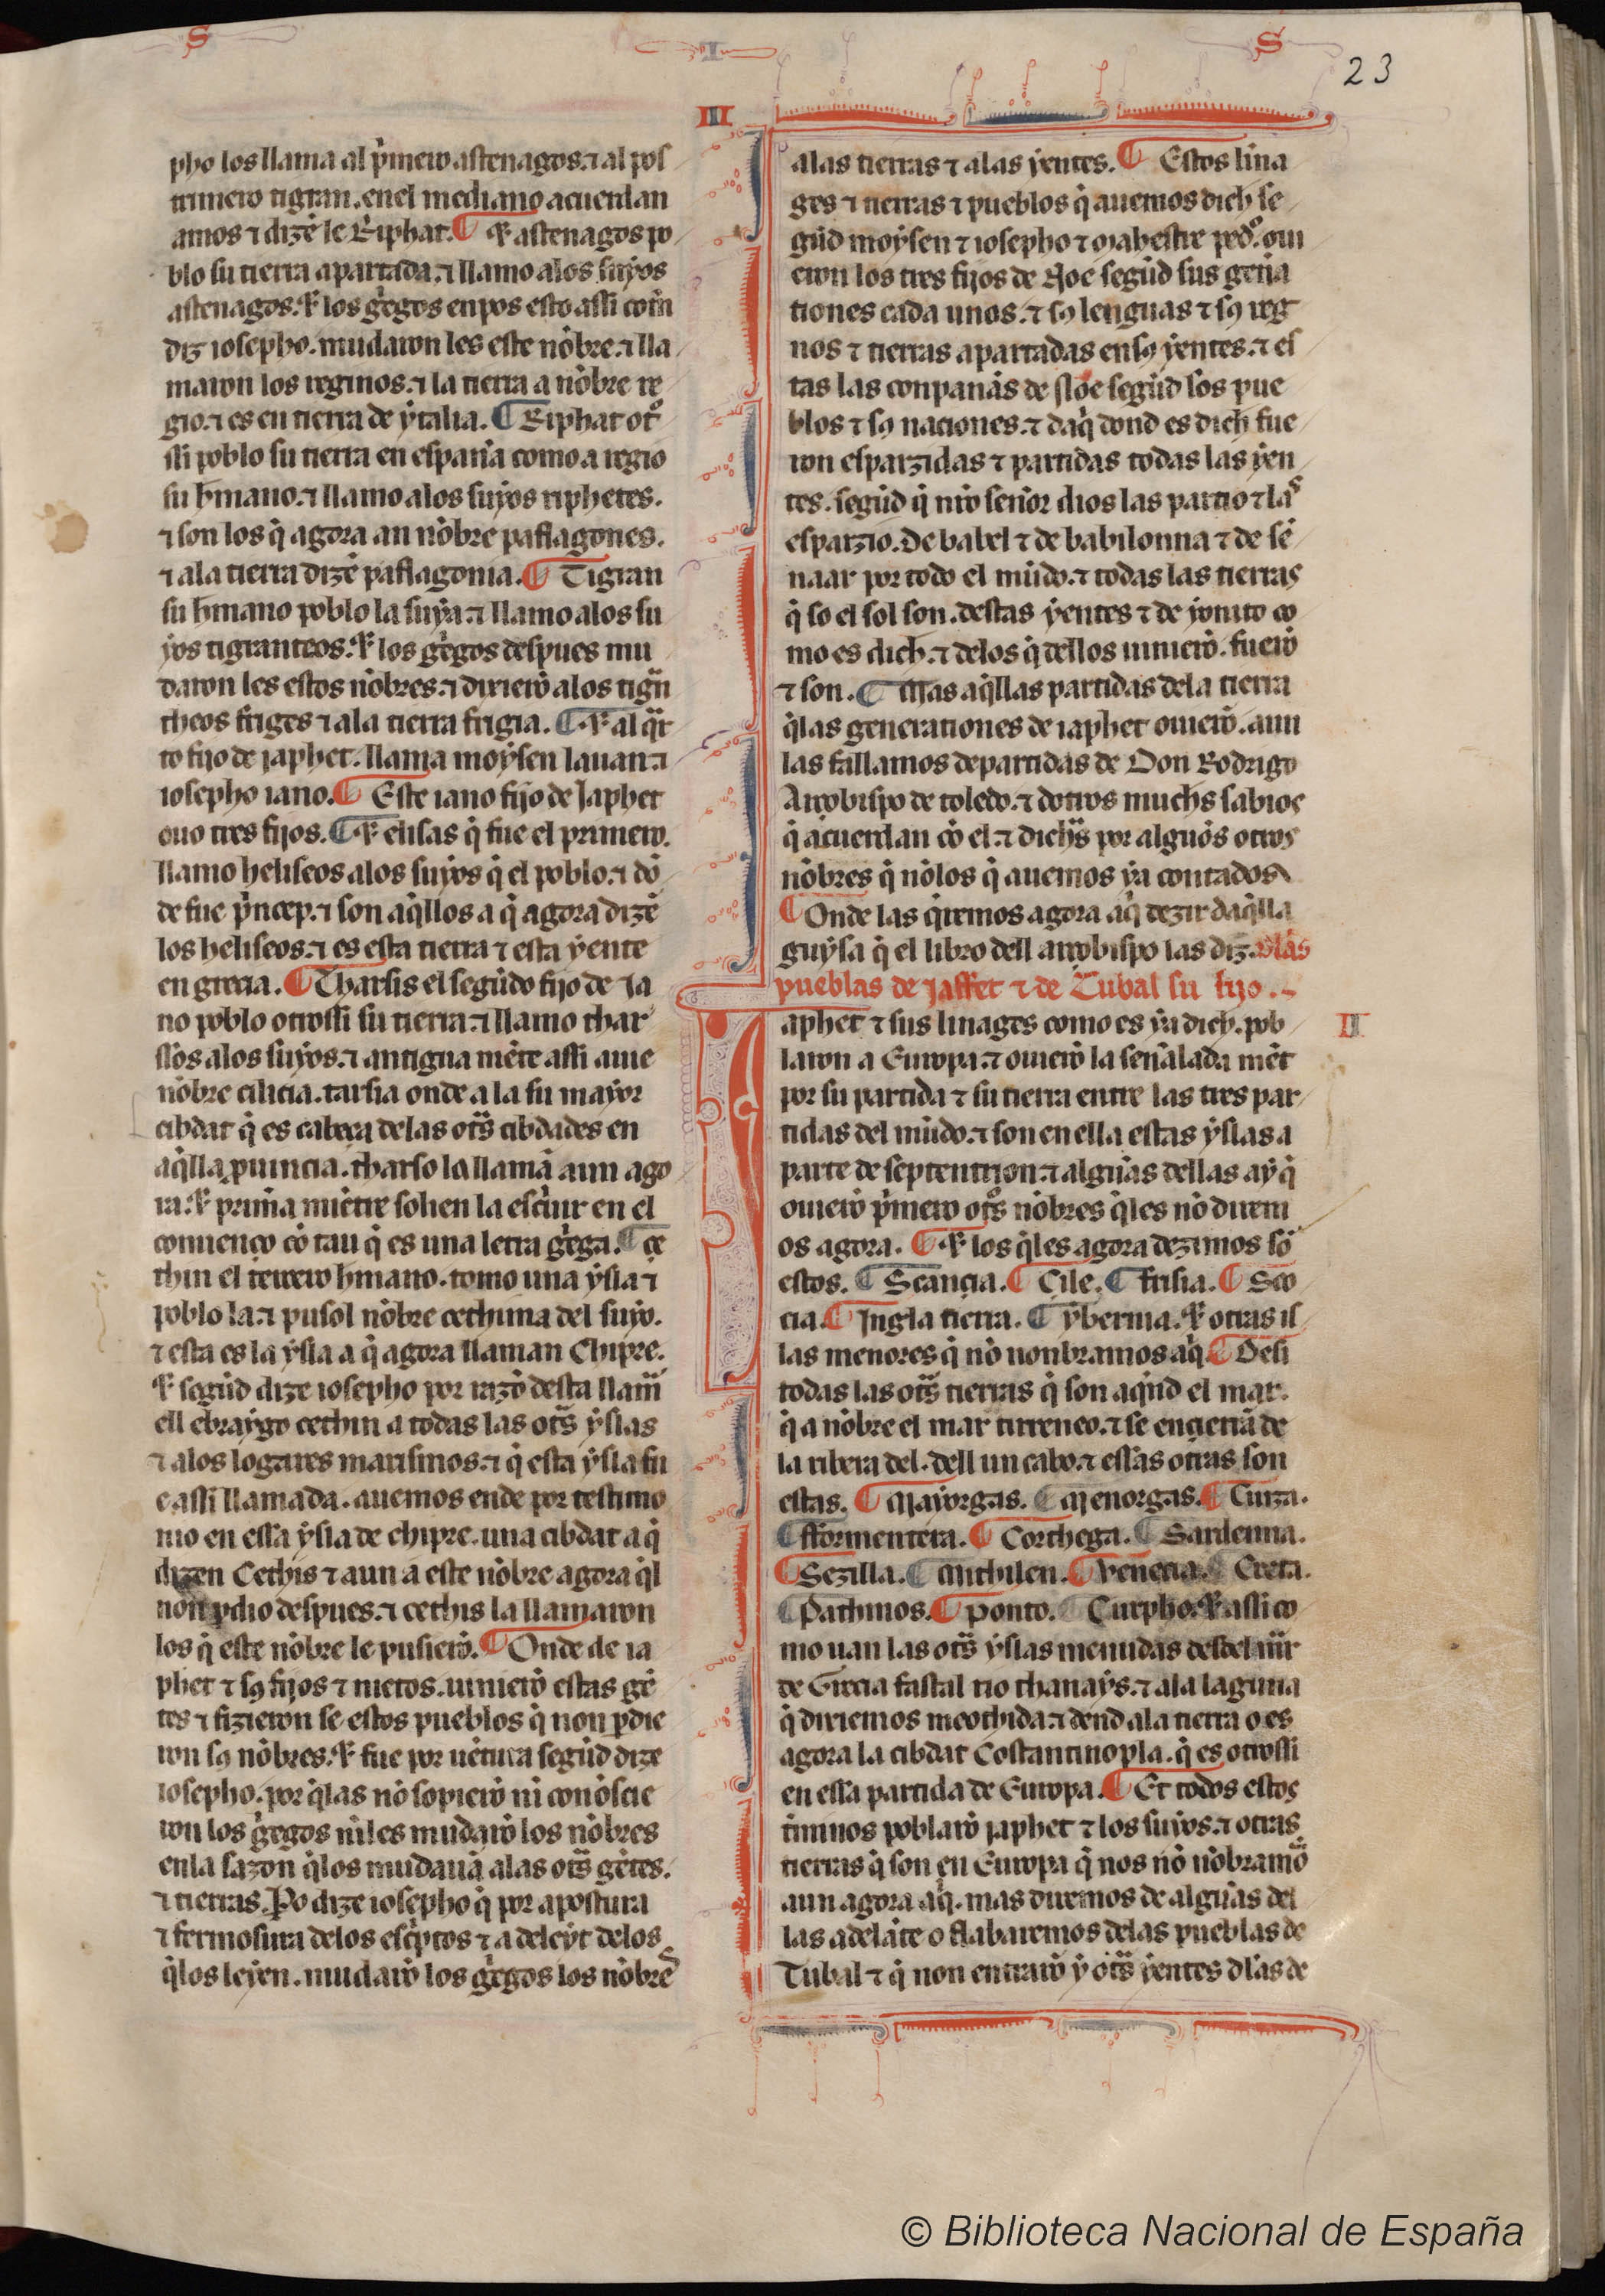 S
I
S
23
III
pho los llama al p̀mero astenagos. ⁊ al pos
trimero tigran. en el mediano acuerdan
amos ⁊ dizẽ le Riphat. ¶ ⁊ astenagos po
blo su tierra apartada. ⁊ llamo alos suyos
astenagos. ⁊ los g̀egos enpos esto assi com̃
diz iosepho. mudaron les este nõbre. ⁊ lla
maron los reginos. ⁊ la tierra a nõbre re
gio. ⁊ es en tierra de ytalia. ¶ Riphat otº
ssi poblo su tierra en espan̄a como a regio
su h̄mano. ⁊ llamo alos suyos riphetes.
⁊ son los q̇ agora an nõbre paflagones.
⁊ ala tierra dizẽ paflagonia. ¶ Tigran
su h̄mano poblo la suya. ⁊ llamo alos su
yos tigranteos. ⁊ los g̀egos despues mu
daron les estos nõbres. ⁊ dixierõ alos tigũ
theos friges ⁊ ala tierra frigia. ¶ ⁊ al q̃r
to fijo de japhet. llama moysen Iauan. ⁊
iosepho iano. ¶ Este iano fijo de Japhet
ouo tres fijos. ¶ ⁊ elisas q̇ fue el primero.
llamo heliseos alos suyos q̇ el poblo. ⁊ dõ
de fue p̀ncep. ⁊ son aq̇llos a q̇ agora dizẽ
los heliseos. ⁊ es esta tierra ⁊ esta yente
en grecia. ¶ Tharsis el segũdo fijo de Ja
no poblo otrossi su tierra. ⁊ llamo thar
ssos alos suyos. ⁊ antigua mẽte assi auie
nõbre cilicia. tarsia onde a la su mayor
cibdat q̇ es cabeça delas otas cibdades en
aq̇lla puincia. tharso la llamã aun ago
ra. ⁊ prim̃a miẽtre solien la esc̀uir en el
comienço cõ tau q̇ es una letra g̀ega. ¶ Ce
thin el tercero h̄mano. tomo una ysla ⁊
poblo la. ⁊ pusol nõbre cethima del suyo.
⁊ esta es la ysla a q̇ agora llaman Chipre.
⁊ segũd dize iosepho por razõ desta llamã
ell ebraygo cethin a todas las otas yslas
⁊ alos logares marismos. ⁊ q̇ esta ysla fu
e assi llamada. auemos ende por testimo
nio en essa ysla de chipre. una cibdat a q̇
dizen Cethis ⁊ aun a este nõbre agora q̇l
non pdio despues. ⁊ cethis la llamaron
los q̇ este nõbre le pusierõ. ¶ Onde de ia
phet ⁊ sꝯ fijos ⁊ nietos. uinierõ estas gẽ
tes ⁊ fizieron se estos pueblos q̇ non pdie
ron sꝯ nõbres. ⁊ fue por uẽtura segũd dize
iosepho. por q̇las nõ sopierõ ni conoscie
ron los g̀egos ni les mudarõ los nõbres
enla sazon q̇los mudauã alas otas gẽtes.
⁊ tierras. Po dize iosepho q̇ por apostura
⁊ fermosura delos esc̀ptos ⁊ a deleyt delos
q̇los leyen. mudarõ los g̀egos los nõbres
alas tierras ⁊ alas yentes. ¶ Estos lina
ges ⁊ tierras ⁊ pueblos q̇ auemos dich̄ se
gũd moysen ⁊ iosepho ⁊ mahestre pedº. oui
eron los tres fijos de Noe segũd sus gen̄a
tiones cada unos. ⁊ sꝯ lenguas ⁊ sꝯ reg
nos ⁊ tierras apartadas en sꝯ yentes. ⁊ es
tas las conpan̄as de Noe segũd los pue
blos ⁊ sꝯ naciones. ⁊ daq̇ dond es dich̄ fue
ron esparzidas ⁊ partidas todas las yen
tes. segũd q̇ nr̃o sen̄or dios las partio ⁊ las
esparzio. De babel ⁊ de babilonna ⁊ de sẽ
naar por todo el mũdo. ⁊ todas las tierras
q̇ so el sol son. destas yentes ⁊ de yonito co
mo es dich̄. ⁊ delos q̇ dellos uinierõ. fuerõ
⁊ son. ¶ Mas aq̇llas partidas dela tierra
q̇las generationes de iaphet ouierõ. aun
las fallamos departidas de Don Rodrigo
Arçobispo de toledo. ⁊ dotros much̄s sabios
q̇ acuerdan cõ el. ⁊ dich̄as por algũos otros
nõbres q̇ nõ los q̇ auemos ya contados
¶ Onde las q̇remos agora aq̇ dezir daq̇lla
guysa q̇ el libro dell arçobispo las diz. Dlas
pueblas de Jaffet ⁊ de Tubal su fijo.
II
Iaphet ⁊ sus linages como es ya dich̄. pob
laron a Europa. ⁊ ouierõ la sen̄alada mẽt
por su partida ⁊ su tierra entre las tres par
tidas del mũdo. ⁊ son en ella estas yslas a
parte de septentrion. ⁊ algũas dellas ay q̇
ouierõ p̀mero otºs nõbres q̇les nõ diremos
os agora. ¶ ⁊ los q̇les agora dezimos sõ
estos. ¶ Scancia. ¶ Cile. ¶ frisia. ¶ Sco
cia. ¶ Ingla tierra. ¶ yberma. ⁊ otras is
las menores q̇ nõ nonbramos aq̇. ¶ Desi
todas las otas tierras q̇ son aq̇nd el mar.
q̇ a nõbre el mar tirreneo. ⁊ se encierrã de
la ribera del. dell un cabo. ⁊ essas otras son
estas. ¶ Mayorgas. ¶ Menorgas. ¶ Euiza.
¶ fformentera. ¶ Corthega. ¶ Sardenna.
¶ Sezilla. ¶ Mithilen. ¶ Venecia. ¶ Creta.
¶ Pathmos. ¶ Ponto. ¶ Curpho. ⁊ assi co
mo uan las otas yslas menudas desdel mar
de Grecia fastal rio thanays. ⁊ ala laguna
q̇ dixiemos meothida. ⁊ dend ala tierra o es
agora la cibdat Costantinopla. q̇ es otrossi
en essa partida de Europa. ¶ Et todos estos
t̄minos poblarõ japhet ⁊ los suyos. ⁊ otras
tierras q̇ son en Europa q̇ nos nõ nõbramos
aun agora aq̇. mas diremos de algũas del
las adelãte o fablaremos delas pueblas de
Tubal ⁊ q̇ non entrarõ y otas yentes dlas de
© Biblioteca Nacional de España